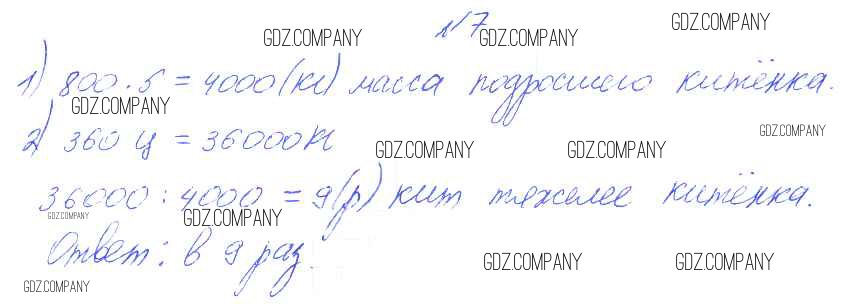 №7
GDZ.COMPANY GDZ.COMPANY GDZ.COMPANY
1) 800 · 5 = 4000 (кг) масса подросшего китёнка.
GDZ.COMPANY
2) 360 ц = 36000 кг
GDZ.COMPANY GDZ.COMPANY GDZ.COMPANY
36000 : 4000 = 9 (р) кит тяжелее китёнка.
GDZ.COMPANY GDZ.COMPANY
Ответ: в 9 раз.
GDZ.COMPANY GDZ.COMPANY GDZ.COMPANY